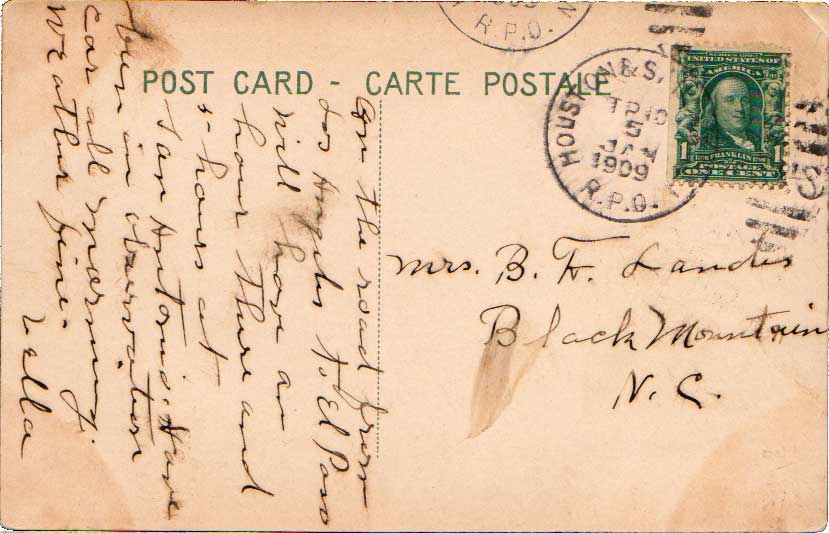 POST CARD - CARTE POSTALE
R.P.O.
HOUSTON & S.
TR 10
5
JAN
1909
R.P.O.
SERIES 1902
UNITED STATES OF
AMERICA
1 FRANKLIN 1
POSTAGE
ONE CENT
Mrs. B. F. Landis
Black Mountain
N. C.
On the road from
Los Angeles to El Paso
will have an
hour there and
5 hours at
San Antonio. Have
been in observation
car all morning.
Weather fine.
Zella